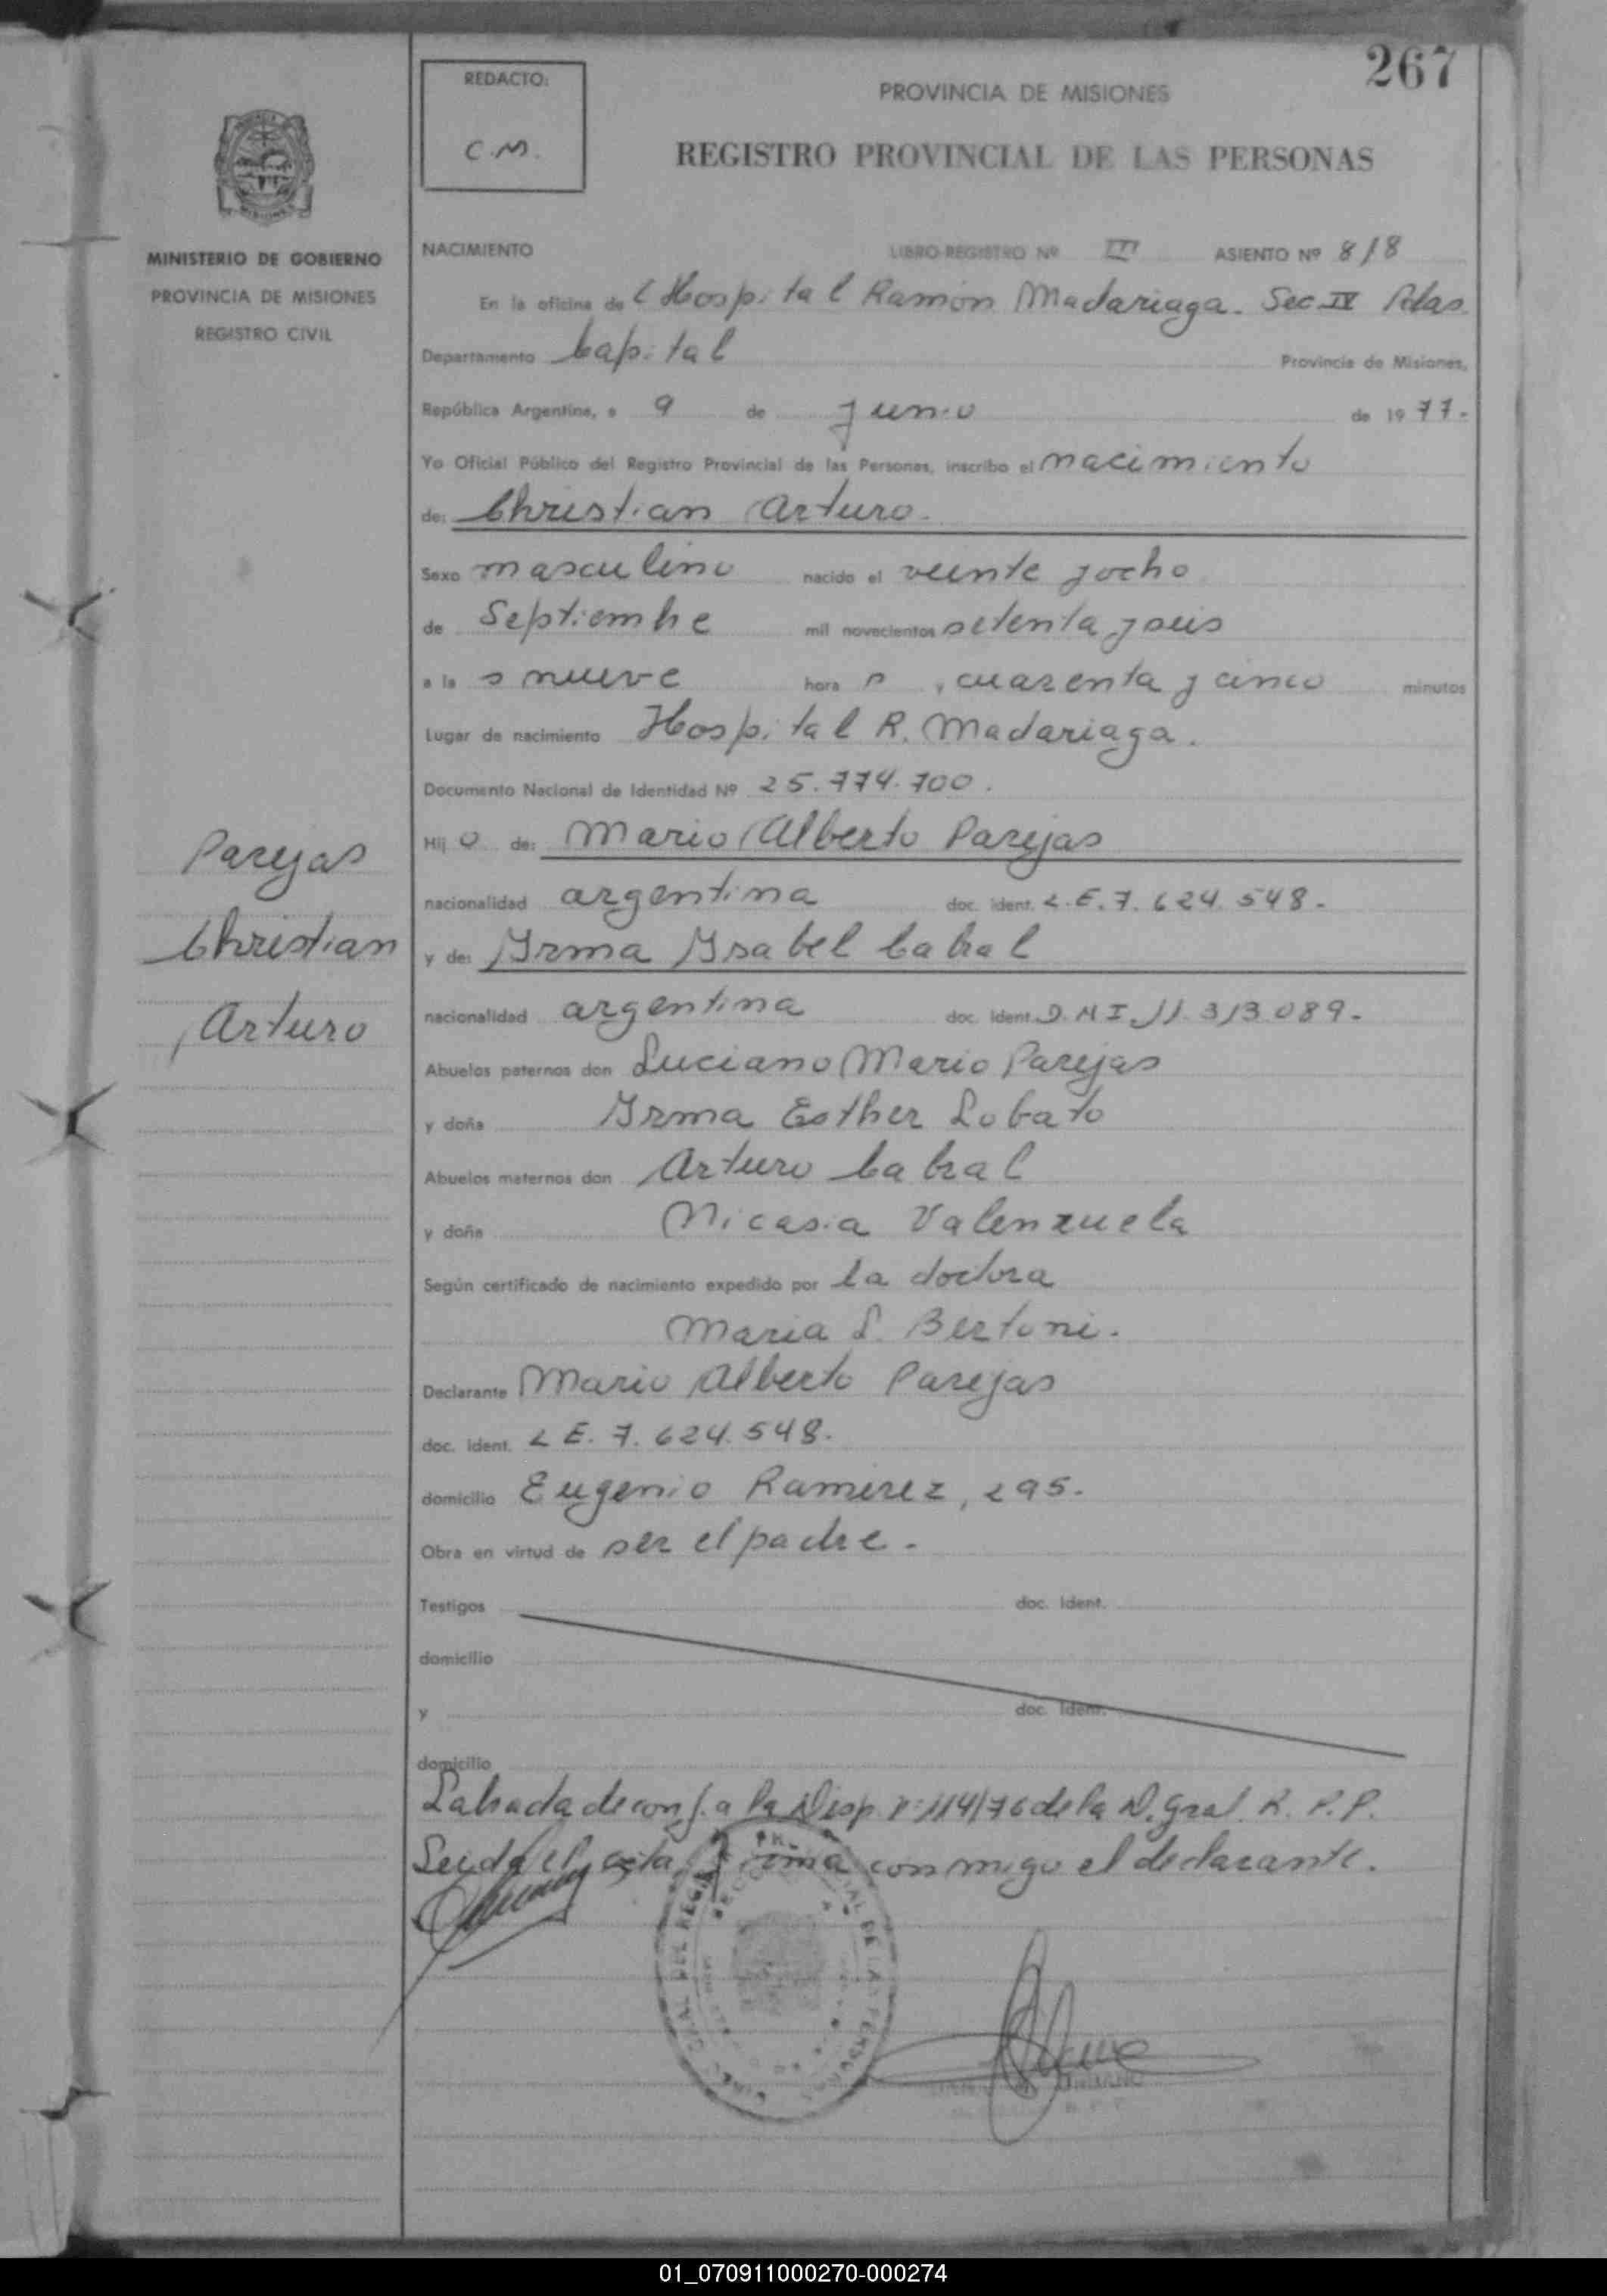 267
REDACTO:
C.M.
PROVINCIA DE MISIONES
REGISTRO PROVINCIAL DE LAS PERSONAS
MINISTERIO DE GOBIERNO
PROVINCIA DE MISIONES
REGISTRO CIVIL
NACIMIENTO LIBRO-REGISTRO Nº III ASIENTO Nº 818
En la oficina del Hospital Ramón Madariaga. Sec IV Pdas.
Departamento Capital Provincia de Misiones,
República Argentina, a 9 de Junio de 1977.-
Yo Oficial Público del Registro Provincial de las Personas, inscribo el nacimiento
de: Christian Arturo.
Sexo masculino nacido el veinte y ocho
de Septiembre mil novecientos setenta y seis
a las nueve horas, cuarenta y cinco minutos
Lugar de nacimiento Hospital R. Madariaga.
Documento Nacional de Identidad Nº 25.774.700.
Hijo de: Mario Alberto Parejas
nacionalidad argentina doc. ident. L.E. 7.624.548.-
y de: Yrma Ysabel Cabral
nacionalidad argentina doc. ident. D.N.I. 11.313.089.-
Abuelos paternos don Luciano Mario Parejas
y doña Yrma Esther Lobato
Abuelos maternos don Arturo Cabral
y doña Nicasia Valenzuela
Según certificado de nacimiento expedido por la doctora
Maria L. Bertoni.
Declarante Mario Alberto Parejas
doc. ident. L E. 7.624.548.
domicilio Eugenio Ramirez, 295.
Obra en virtud de ser el padre.
Testigos doc. ident.
domicilio
y doc. ident.
domicilio
Labrada de conf. a la Disp. nº 114/76 de la D. Gral. R. P. P.
Leida el acta, firma conmigo el declarante.
Parejas
Christian
Arturo
01_070911000270-000274